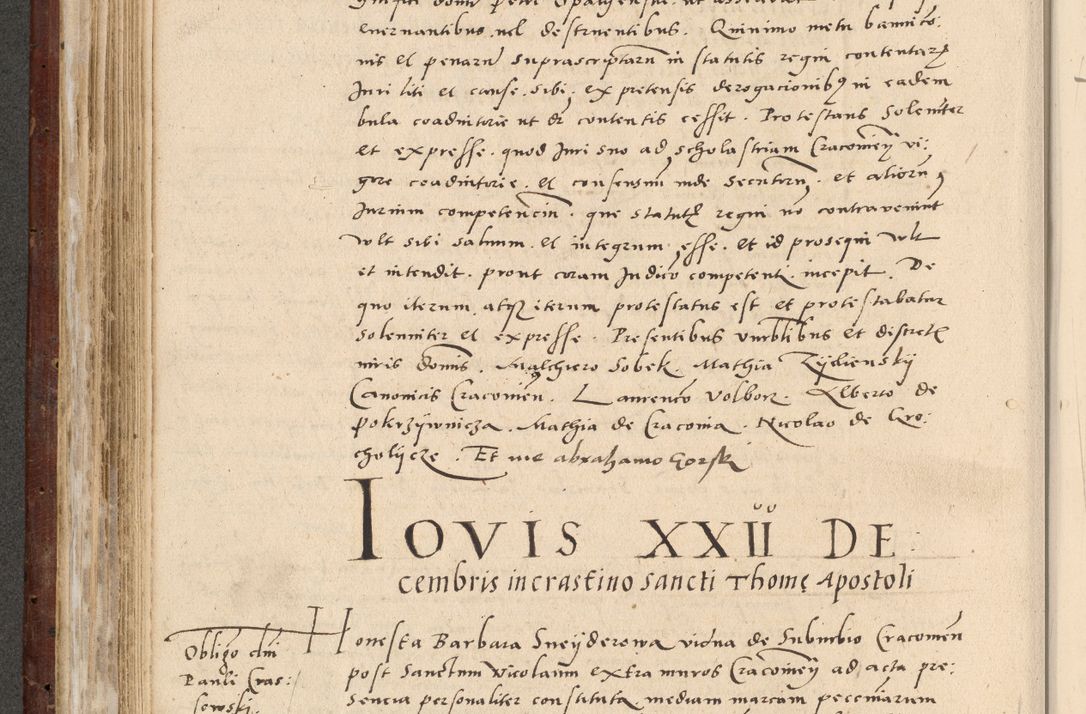 evernantibus, vel destruentibus. Quinimo metu bannico:
nis et penarum suprascriptarum in statutis regni contentarum
Juri liti et cause, sibi, ex pretensis derogacionibus in eadem
bula coadiutorie ut dr contentis cessit. Protestans Solemniter
et expresse. quod Juri suo ad scholastriam Cracovien vi:
gore coadiutorie, et consensum inde secutorum, et aliorum
Jurium competencium. que statutis regni no contraveniunt
vult sibi salvum, et integrum esse. et id prosequi vult
et intendit. prout coram Judico competenti incepit. De
quo iterum atque iterum protestatus est et protestabatur
Solenniter et expresse. Presentibus vnrblibus et discretis
viris domis. Malchiero Sobek. Mathia Zydiensky
Canonicis Cracovien. Laurenco Volborz. Alberto de
pokrzywnicza. Mathia de Cracovia. Nicolao de Gro:
cholycze. Et me abrahamo Gorski
IOVIS XXII DE:
cembris in crastino sancti Thome Apostoli
Obligo dni
Pauli Cras:
sowski.
Honesta Barbara Sneyderowa vidua de Suburbio Cracovien
post Sanctum Nicolaum extra muros Cracovien ad acta pre:
sencia personaliter constituta, mediam marcam pecuniarum